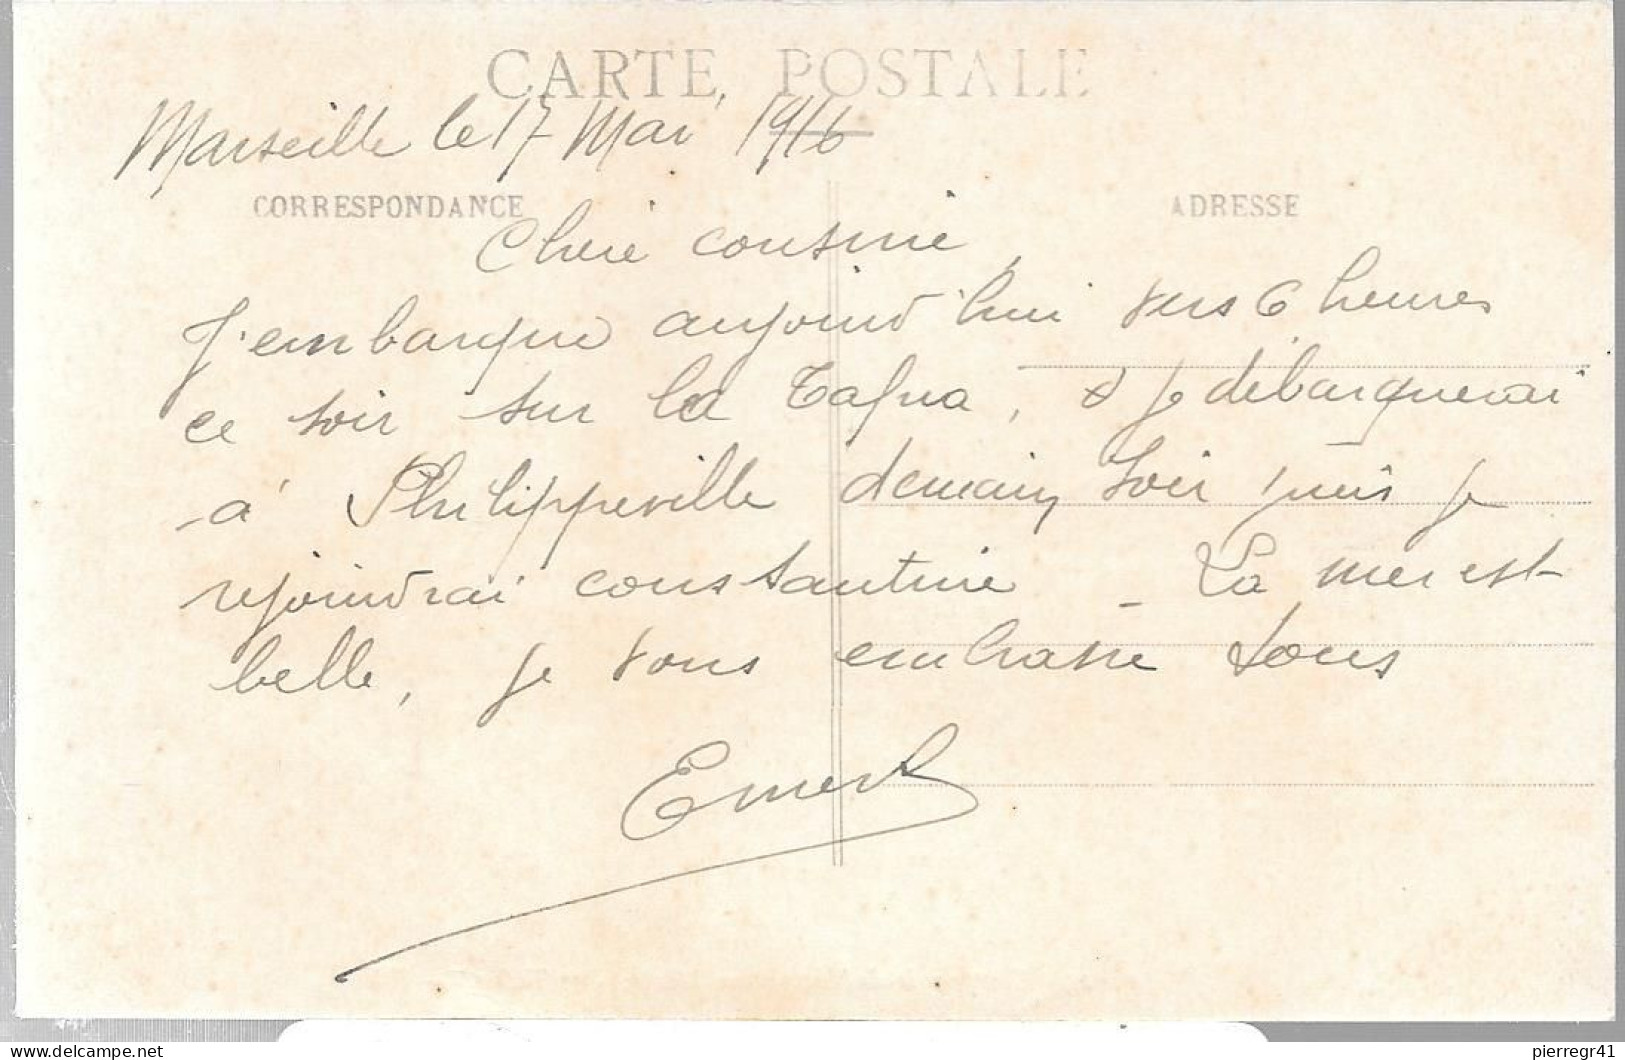 CARTE POSTALE
Marseille le 17 Mai 1916
CORRESPONDANCE
ADRESSE
Chère cousine,
J'embarque aujourd'hui vers 6 heures
ce soir sur la Tafna, & je débarquerai
à Philippeville demain soir puis je
rejoindrai constantine _ La mer est
belle, je vous embrasse tous
pierregr41